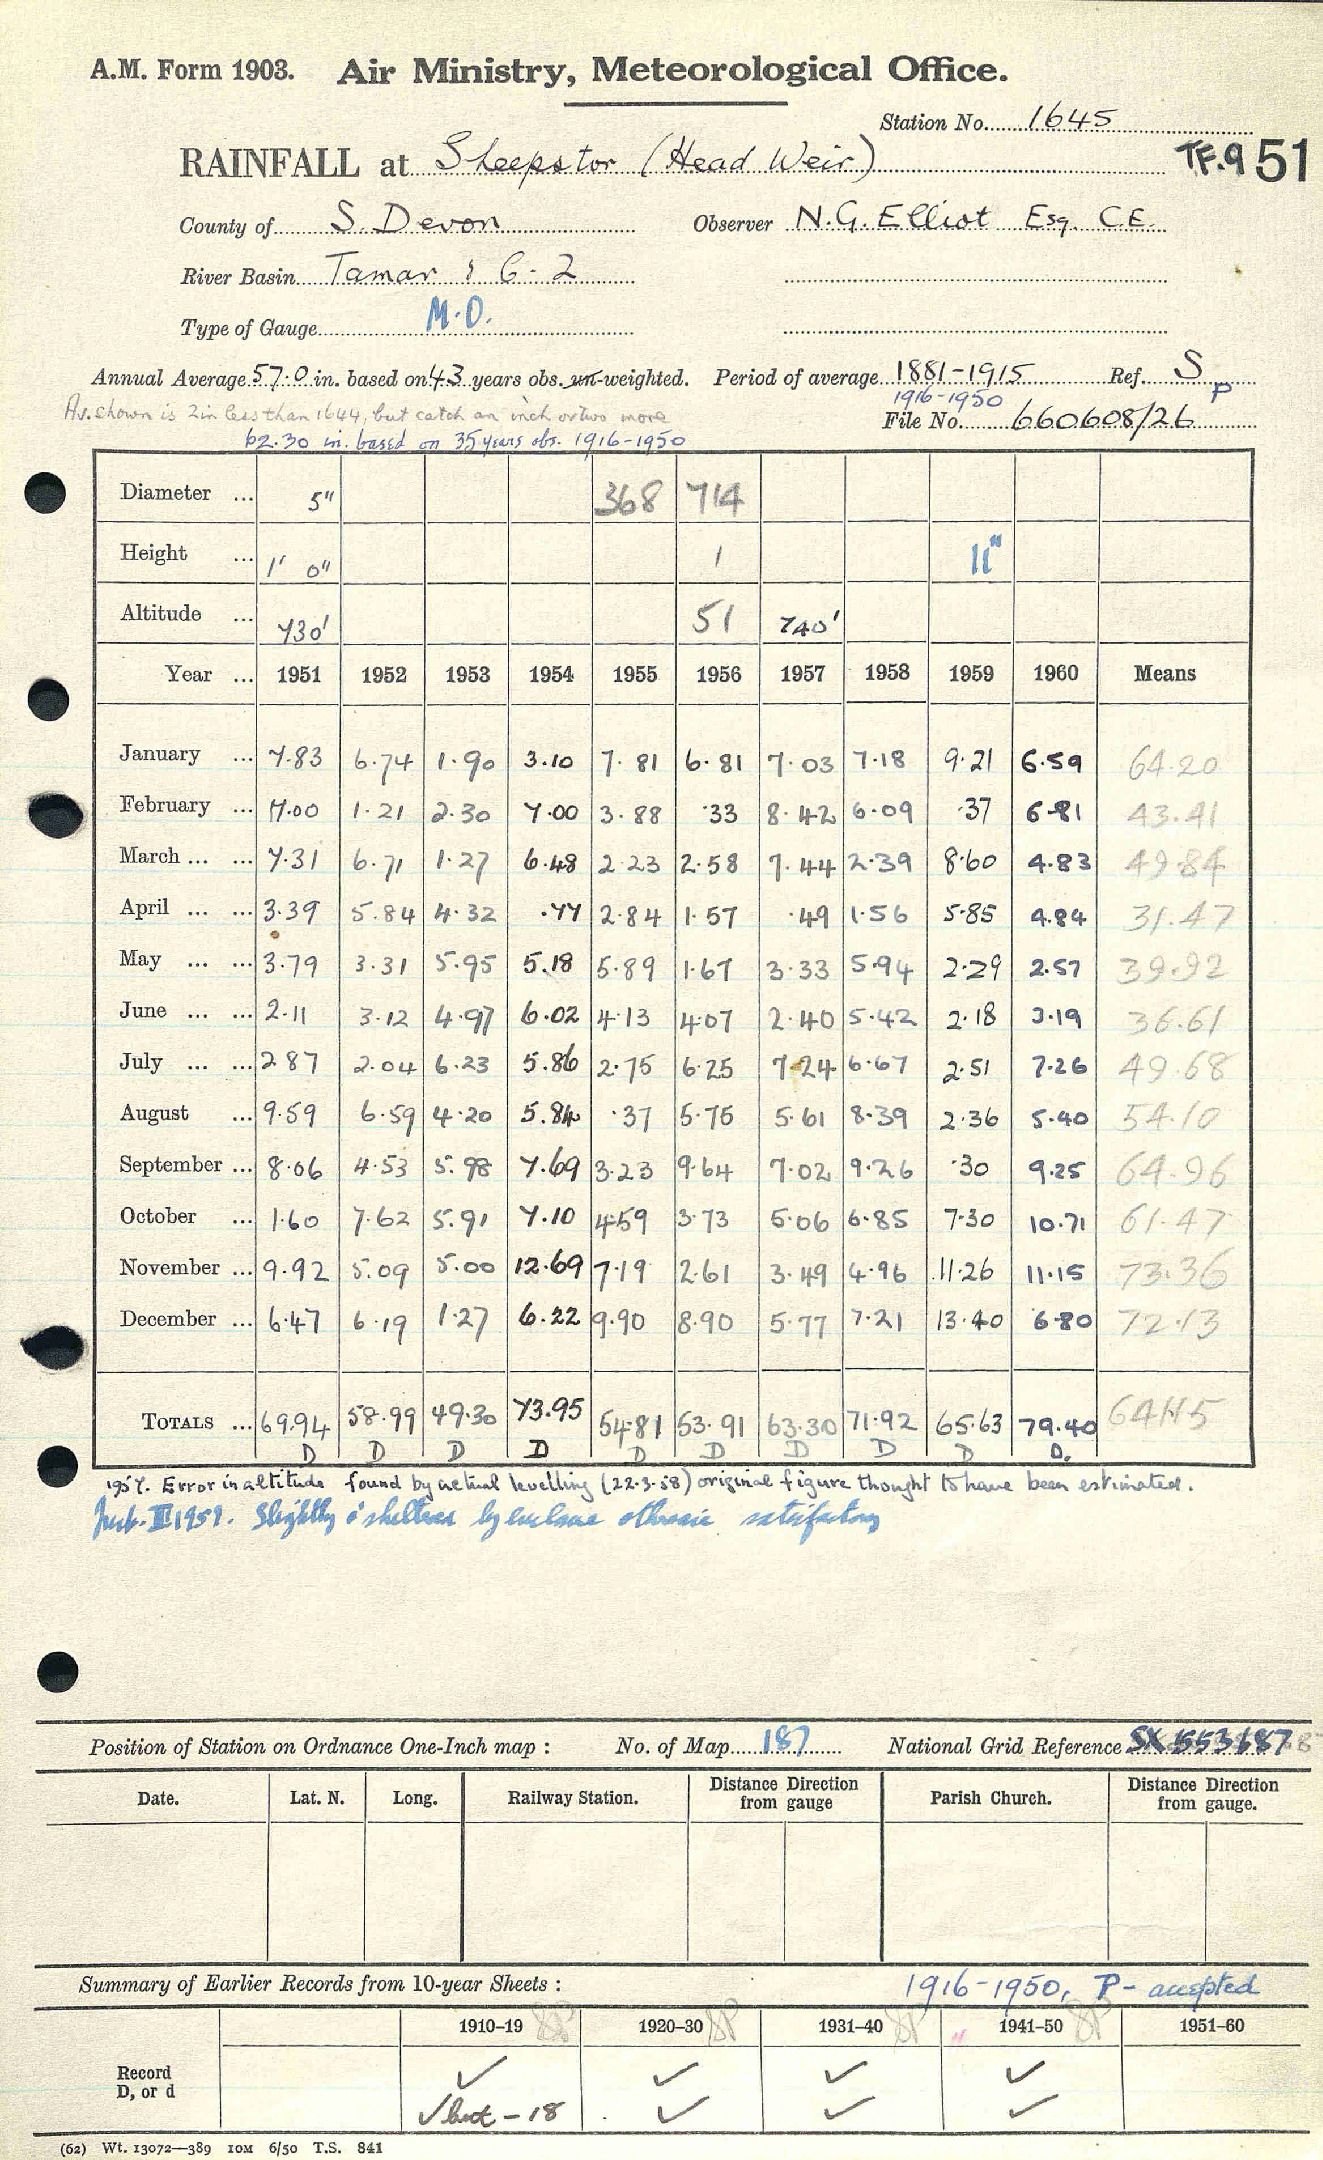 A.M. Form 1903. Air Ministry, Meteorological Office.
Station No. 1645
RAINFALL at Sheepstor (Head Weir) TF.9 51
County of S. Devon Observer N.G. Elliot Esq. C.E.
River Basin Tamar & C - 2
Type of Gauge M.O.
Annual Average 57.0 in. based on 43 years obs. un-weighted. Period of average 1881-1915 Ref. S P
1916-1950
Av. shown is 2 in less than 1644, but catch an inch or two more File No. 660608/26
62.30 in. based on 35 years obs. 1916-1950
Diameter ... 5" 368 714
Height ... 1' 0" 1 11"
Altitude ... 730' 51 740'
Year ... 1951 1952 1953 1954 1955 1956 1957 1958 1959 1960 Means
January ... 7.83 6.74 1.90 3.10 7.81 6.81 7.03 7.18 9.21 6.59 64.20
February ... 7.00 1.21 2.30 7.00 3.88 .33 8.42 6.09 .37 6.81 43.41
March ... ... 7.31 6.71 1.27 6.48 2.23 2.58 7.44 2.39 8.60 4.83 49.84
April ... ... 3.39 5.84 4.32 .77 2.84 1.57 .49 1.56 5.85 4.84 31.47
May ... ... 3.79 3.31 5.95 5.18 5.89 1.67 3.33 5.94 2.29 2.57 39.92
June ... ... 2.11 3.12 4.97 6.02 4.13 4.07 2.40 5.42 2.18 3.19 36.61
July ... ... 2.87 2.04 6.23 5.86 2.75 6.25 7.24 6.67 2.51 7.26 49.68
August ... 9.59 6.59 4.20 5.84 .37 5.75 5.61 8.39 2.36 5.40 54.10
September ... 8.06 4.53 5.98 7.69 3.23 9.64 7.02 9.26 .30 9.25 64.96
October ... 1.60 7.62 5.91 7.10 4.59 3.73 5.06 6.85 7.30 10.71 61.47
November ... 9.92 5.09 5.00 12.69 7.19 2.61 3.49 4.96 11.26 11.15 73.36
December ... 6.47 6.19 1.27 6.22 9.90 8.90 5.77 7.21 13.40 6.80 72.13
TOTALS ... 69.94 58.99 49.30 73.95 54.81 53.91 63.30 71.92 65.63 79.40
D D D D D D D D D D.
1957. Error in altitude found by actual levelling (22.3.58) original figure thought to have been estimated.
III 1959. Slightly o'sheltered by enclosure otherwise satisfactory
Position of Station on Ordnance One-Inch map : No. of Map 187 National Grid Reference SX 553687
Date. Lat. N. Long. Railway Station. Distance Direction from gauge Parish Church. Distance Direction from gauge.
Summary of Earlier Records from 10-year Sheets : 1916-1950, P - accepted
1910-19 SP 1920-30 SP 1931-40 SP 1941-50 SP 1951-60
Record ✓ ✓ ✓ ✓
D, or d ✓ but - 18 ✓ ✓ ✓
(62) Wt. 13072—389 10M 6/50 T.S. 841